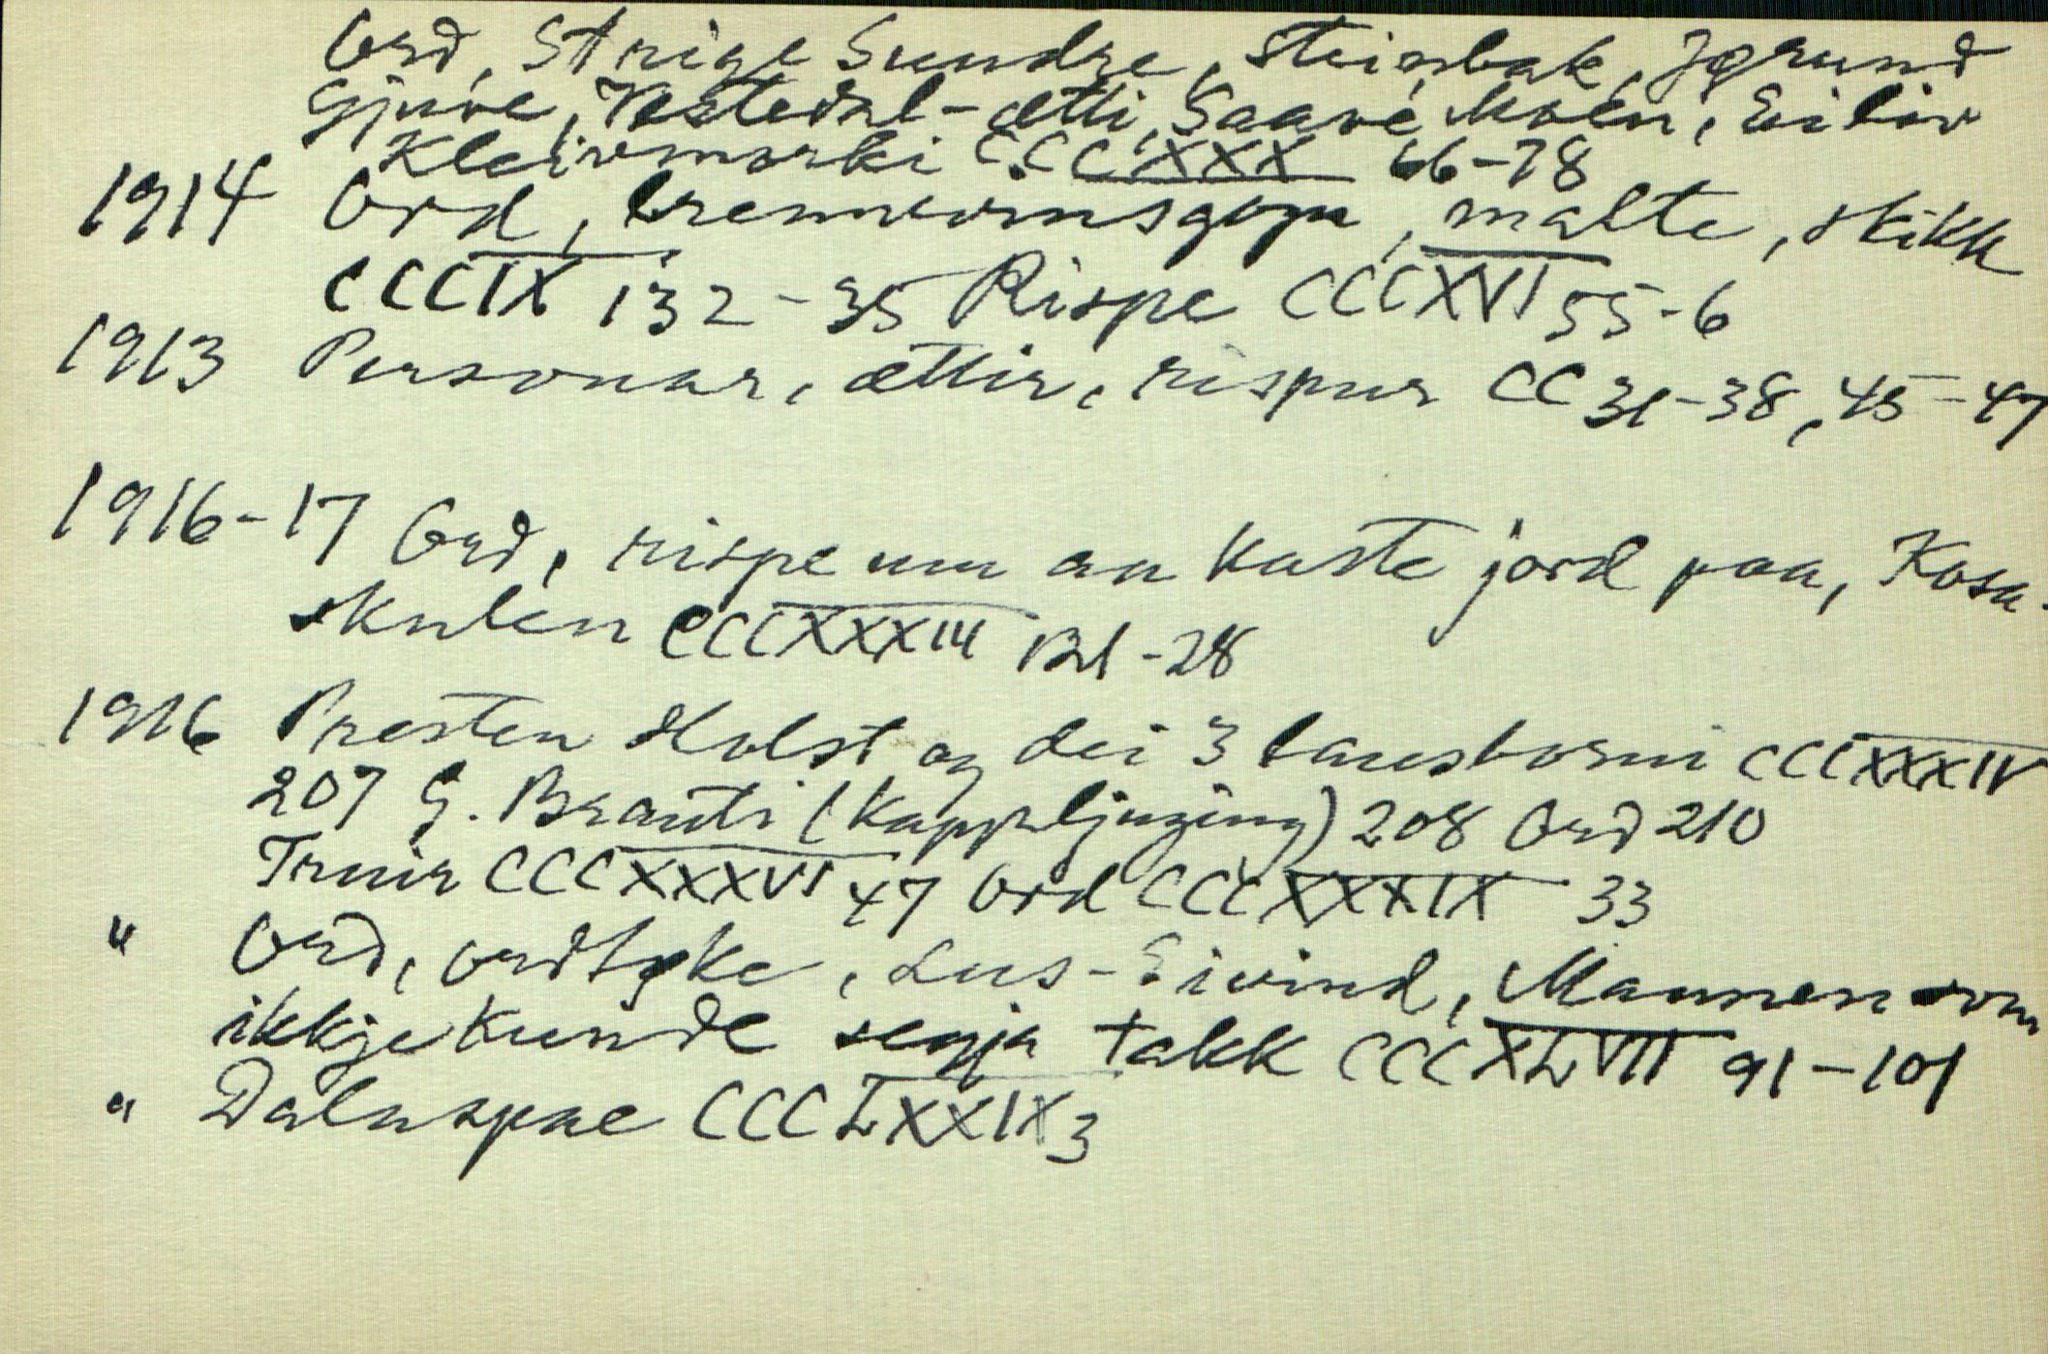 Ord, Strige Sundre, Steinbak, Jørund
Gjuve, Vestedal-ætti, Saave Moen, Eiliv
Kleivmorki CCCXXX 66-78
1914 Ord, brennevinsgogn, malte, skikk
CCCIX 132-35 Rispe CCCXVI 55-6
1913 Personar, ættir, rispur CC 31-38, 45-47
1916-17 Ord, rispe um an kaste jord paa, Kosa-
skulen CCCXXXIII 121-28
1916 Presten Holst og dei 3 lausborni CCCXXXIV
207 G. Brauti (Kappljuging) 208 Ord 210
Truir CCCXXXVI 47 Ord CCCXXXIX 33
" Ord, ordtøke, Lus-Eivind, Mannen som
ikkje kunde segja takk CCCXLVII 91-101
" Dalaspae CCCLXXIX 3